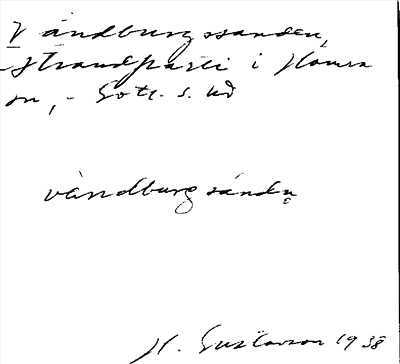 Vändburgssanden,
strandparti i Hamra
sn, - Gotl. s. ud
vändburgsándn̥
H. Gustavson 1938